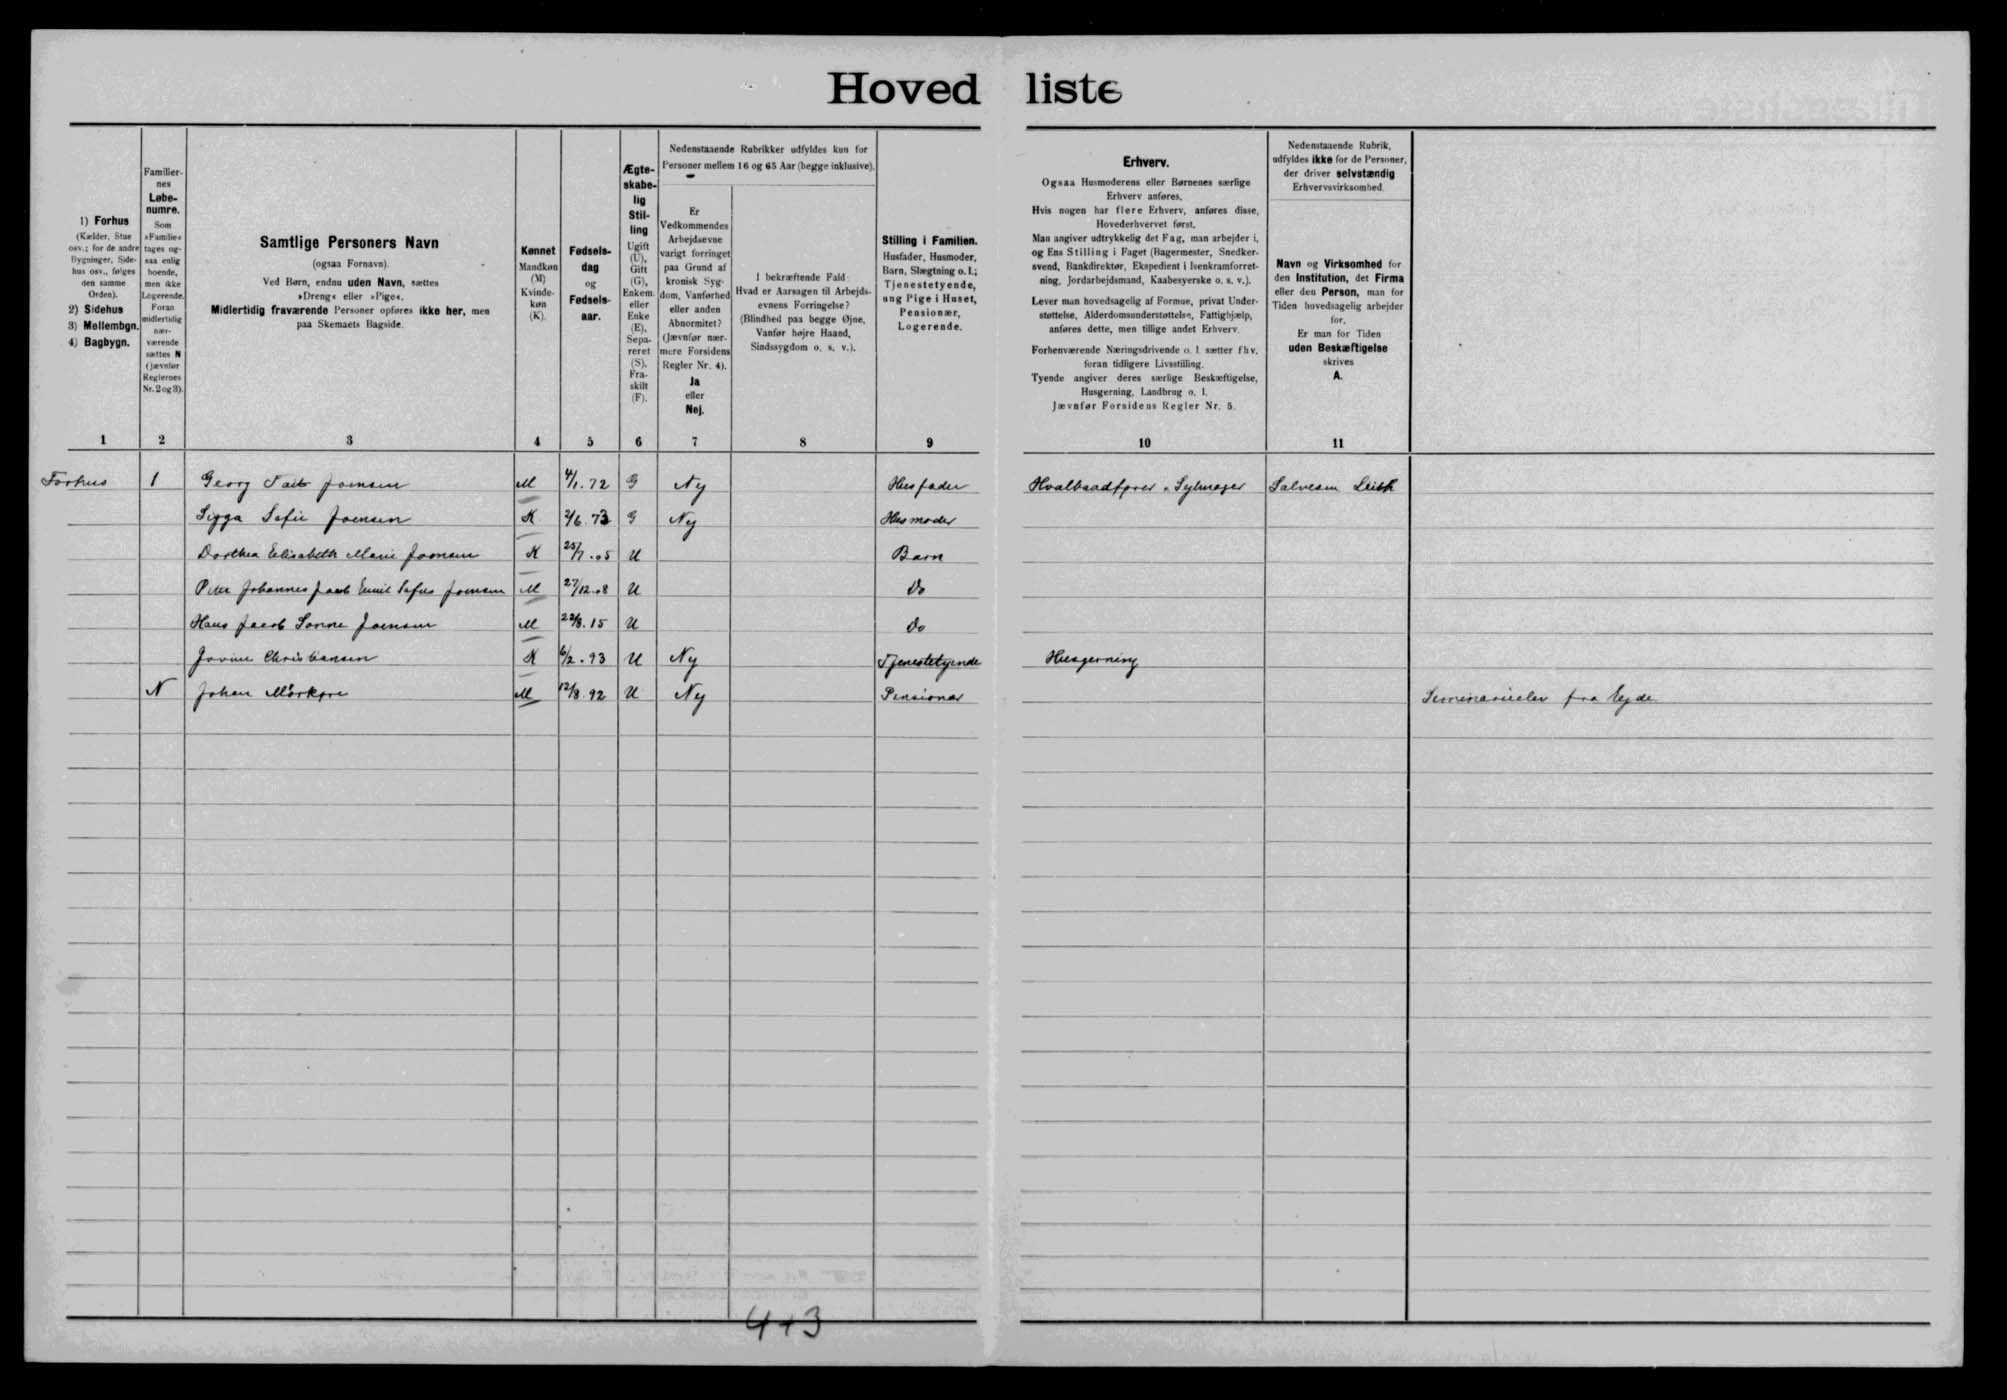 Hovedliste
1) Forhus
(Kælder, Stue
osv.; for de andre
Bygninger, Side-
hus osv., følges
den samme
Orden).
2) Sidehus
3) Mellembgn.
4) Bagbygn.
1
Familier-
nes
Løbe-
numre.
Som
»Familie«
tages og-
saa enlig
boende,
men ikke
Logerende.
Foran
midlertidig
nær-
værende
sættes N
(jævnfør
Reglernes
Nr. 2 og 3).
2
Samtlige Personers Navn
(ogsaa Fornavn).
Ved Børn, endnu uden Navn, sættes
»Dreng« eller »Pige«.
Midlertidig fraværende Personer opføres ikke her, men
paa Skemaets Bagside.
3
Kønnet
Mandkøn
(M)
Kvinde-
køn
(K).
4
Fødsels-
dag
og
Fødsels-
aar.
5
Ægte-
skabe-
lig
Stil-
ling
Ugift
(U),
Gift
(G),
Enkem.
eller
Enke
(E),
Sepa-
reret
(S),
Fra-
skilt
(F).
6
Nedenstaaende Rubrikker udfyldes kun for
Personer mellem 16 og 65 Aar (begge inklusive).
Er
Vedkommendes
Arbejdsevne
varigt forringet
paa Grund af
kronisk Syg-
dom, Vanførhed
eller anden
Abnormitet?
(Jævnfør nær-
mere Forsidens
Regler Nr. 4).
Ja
eller
Nej.
7
I bekræftende Fald:
Hvad er Aarsagen til Arbejds-
evnens Forringelse?
(Blindhed paa begge Øjne,
Vanfør højre Haand,
Sindssygdom o. s. v.).
8
Stilling i Familien.
Husfader, Husmoder,
Barn, Slægtning o. l.;
Tjenestetyende,
ung Pige i Huset,
Pensionær,
Logerende.
9
Erhverv.
Ogsaa Husmoderens eller Børnenes særlige
Erhverv anføres,
Hvis nogen har flere Erhverv, anføres disse,
Hovederhvervet først.
Man angiver udtrykkelig det Fag, man arbejder i,
og Ens Stilling i Faget (Bagermester, Snedker-
svend, Bankdirektør, Ekspedient i Isenkramforret-
ning, Jordarbejdsmand, Kaabesyerske o. s. v.).
Lever man hovedsagelig af Formue, privat Under-
støttelse, Alderdomsunderstøttelse, Fattighjælp,
anføres dette, men tillige andet Erhverv.
Forhenværende Næringsdrivende o. l. sætter fhv.
foran tidligere Livsstilling.
Tyende angiver deres særlige Beskæftigelse,
Husgerning, Landbrug o. l.
Jævnfør Forsidens Regler Nr. 5.
10
Nedenstaaende Rubrik,
udfyldes ikke for de Personer,
der driver selvstændig
Erhvervsvirksomhed.
Navn og Virksomhed for
den Institution, det Firma
eller den Person, man for
Tiden hovedsagelig arbejder
for.
Er man for Tiden
uden Beskæftigelse
skrives
A.
11
Forhus 1 Georg Joensen M 4/1.72 G Nej Husfader Hvalbaadfører Salvesen Leith
Sigga Sofie Joensen K 2/6.73 G Nej Husmoder
Dorthea Elisabeth Marie Joensen K 25/7.05 U Barn
Peter Johannes Jacob Emil Sofus Joensen M 27/12.08 U Do
Hans Jacob Sonne Joensen M 22/8.15 U Do
Jovine Christiansen K 6/2.93 U Nej Tjenestetyende Husgerning
N Johan Mörköre M 12/8.92 U Nej Pensionær Seminarieelev fra Ejde
4+3